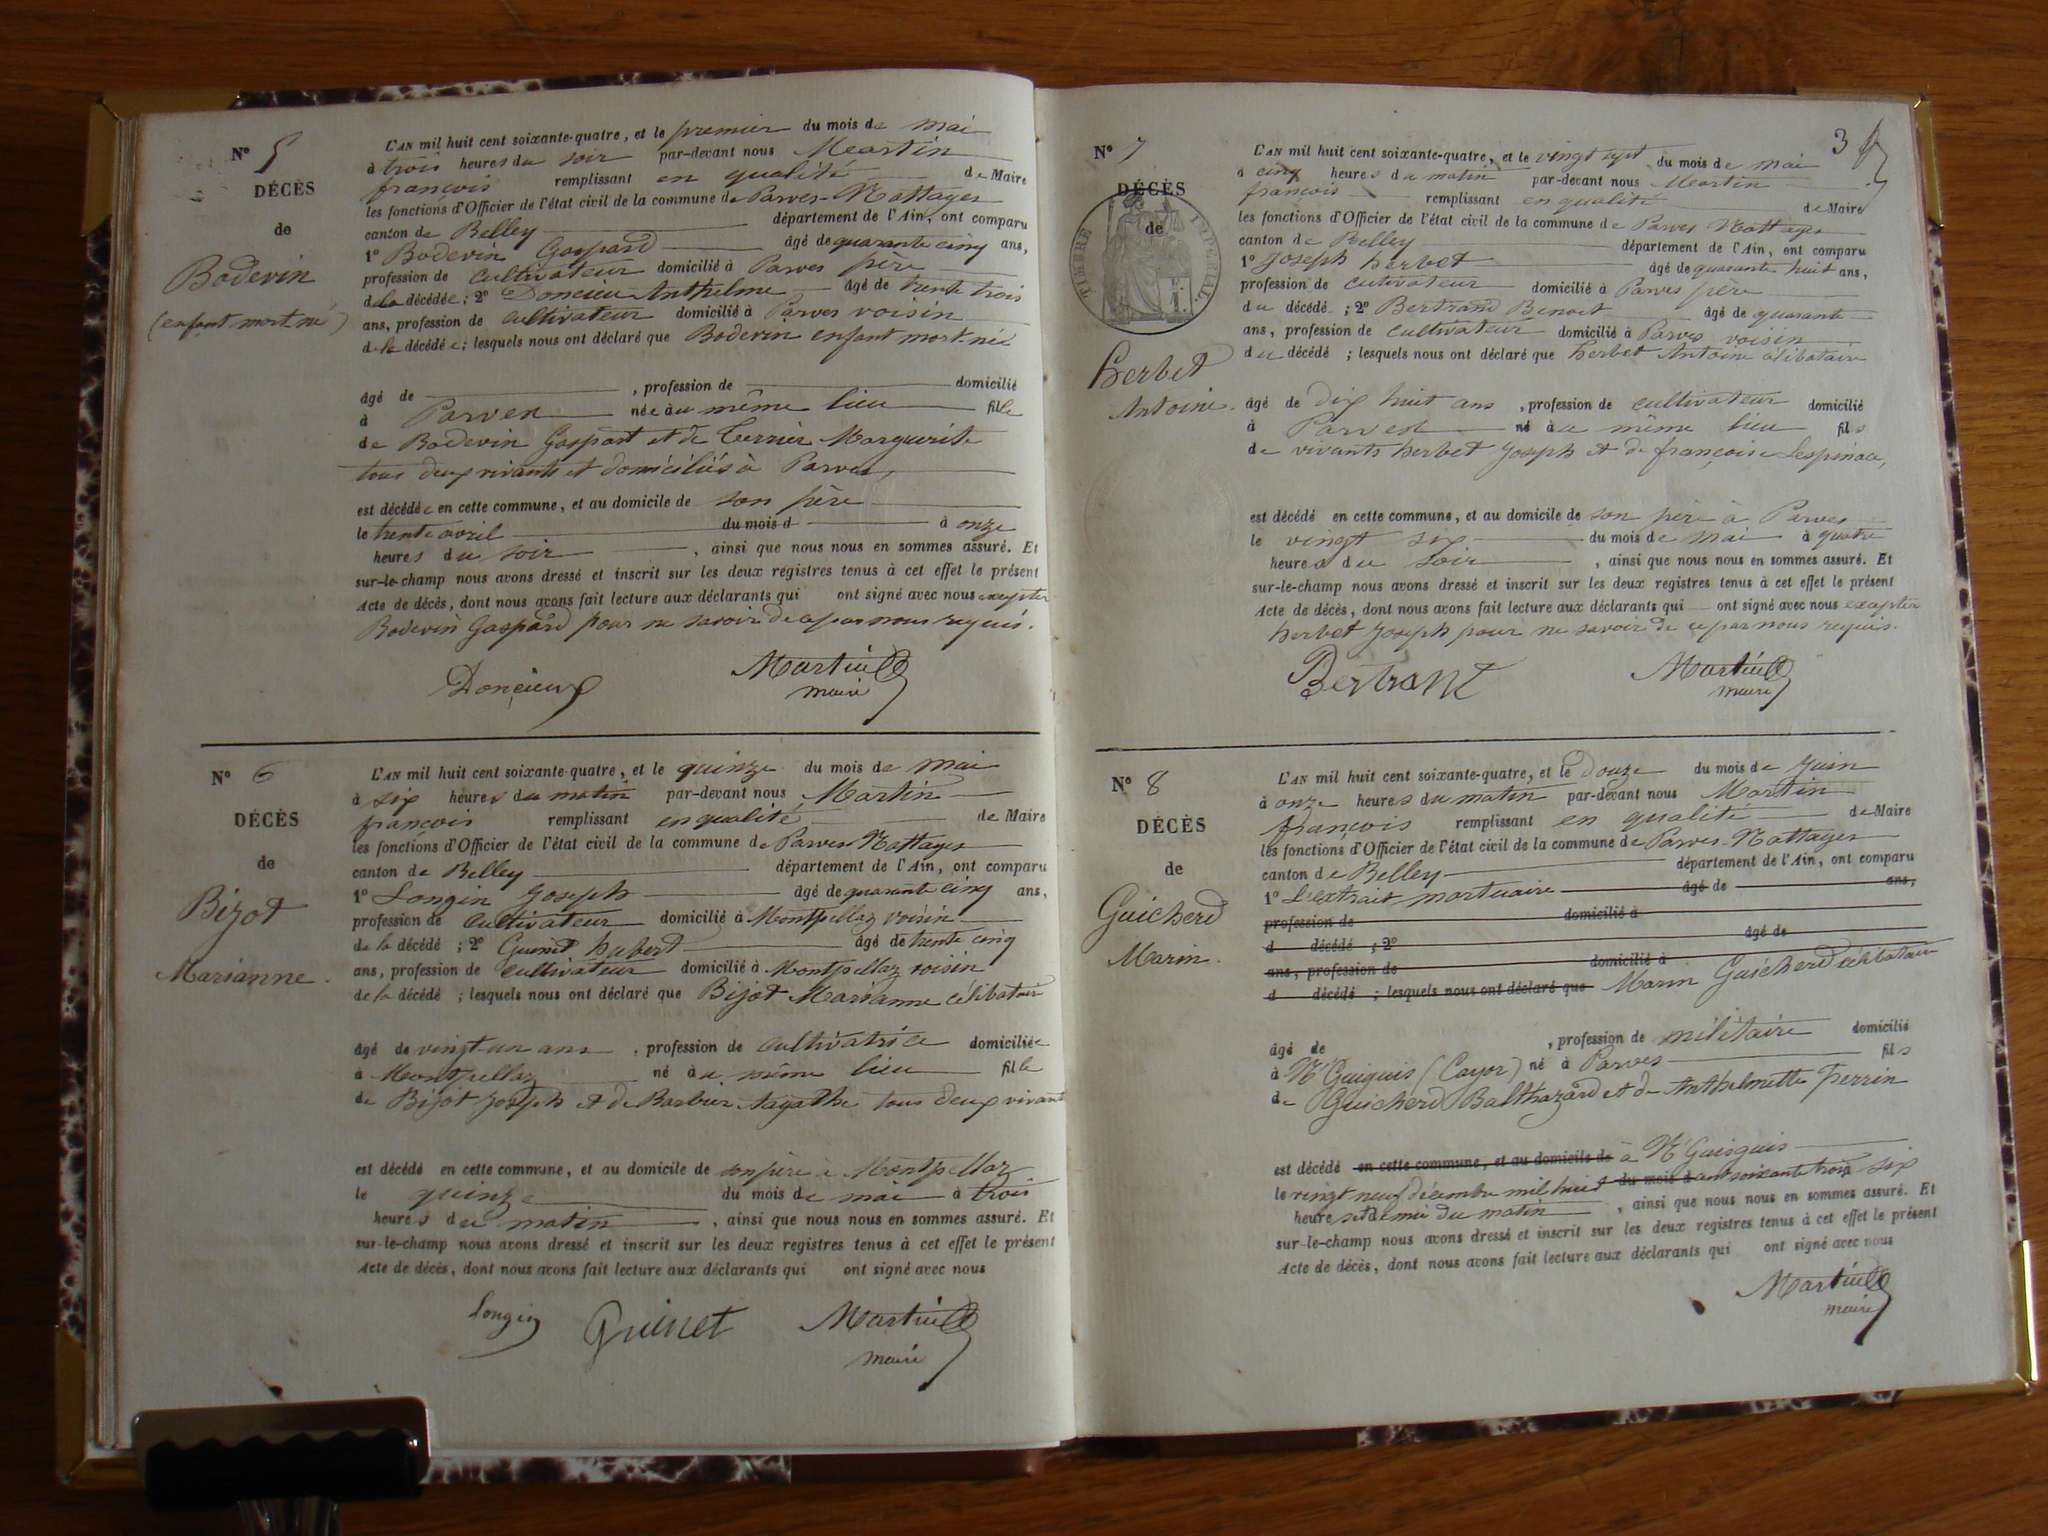 N° 5
DÉCÈS
de
Bodevin
(enfant mort né)
L'AN mil huit cent soixante-quatre, et le premier du mois de mai
à trois heures du soir par-devant nous Martin
françois remplissant en qualité de Maire
les fonctions d'Officier de l'état civil de la commune de Parves-Nattages
canton de Belley département de l'Ain, ont comparu
1° Bodevin Gaspard âgé de quarante cinq ans,
profession de cultivateur domicilié à Parves père
de la décédée; 2° Doncieu Anthelme âgé de trente trois
ans, profession de cultivateur domicilié à Parves voisin
de la décédée; lesquels nous ont déclaré que Bodevin enfant mort-née
âgé de , profession de domicilié
à Parves née au même lieu fille
de Bodevin Gaspart et de Terrier Marguerite
tous deux vivants et domiciliés à Parves,
est décédée en cette commune, et au domicile de son père
le trente avril du mois d à onze
heures du soir , ainsi que nous nous en sommes assuré. Et
sur-le-champ nous avons dressé et inscrit sur les deux registres tenus à cet effet le présent
Acte de décès, dont nous avons fait lecture aux déclarants qui ont signé avec nous excepter
Bodevin Gaspard pour ne savoir de ce par nous requis.
Doncieux Martin
maire
N° 6
DÉCÈS
de
Bizot
Marianne.
L'AN mil huit cent soixante-quatre, et le quinze du mois de mai
à six heures du matin par-devant nous Martin
françois remplissant en qualité de Maire
les fonctions d'Officier de l'état civil de la commune de Parves Nattages
canton de Belley département de l'Ain, ont comparu
1° Longin Joseph âgé de quarante cinq ans,
profession de cultivateur domicilié à Montpellaz voisin
de la décédé; 2° Guinet hubert âgé de trente cinq
ans, profession de cultivateur domicilié à Montpellaz voisin
de la décédé; lesquels nous ont déclaré que Bizot Marianne célibatair
âgé de vingt-un ans , profession de cultivatrice domiciliée
à Montpellaz né au même lieu fille
de Bizot Joseph et de Barbier Agathe tous deux vivant
est décédé en cette commune, et au domicile de son père à Montpellaz
le quinze du mois de mai à trois
heures du matin , ainsi que nous nous en sommes assuré. Et
sur-le-champ nous avons dressé et inscrit sur les deux registres tenus à cet effet le présent
Acte de décès, dont nous avons fait lecture aux déclarants qui ont signé avec nous
Longin Guinet Martin
maire
3
N° 7
DÉCÈS
de
TIMBRE IMPÉRIAL
herbet
Antoine.
L'AN mil huit cent soixante-quatre, et le vingt sept du mois de mai
à cinq heures du matin par-devant nous Martin
françois remplissant en qualité de Maire
les fonctions d'Officier de l'état civil de la commune de Parves Nattages
canton de Belley département de l'Ain, ont comparu
1° Joseph herbet âgé de quarante huit ans,
profession de cultivateur domicilié à Parves père
du décédé; 2° Bertrand Benoit âgé de quarante
ans, profession de cultivateur domicilié à Parves voisin
du décédé; lesquels nous ont déclaré que herbet Antoine célibataire
âgé de dix huit ans , profession de cultivateur domicilié
à Parves né au même lieu fils
de vivants herbet Joseph et de françoise Lespinace,
est décédé en cette commune, et au domicile de son père à Parves
le vingt six du mois de mai à quatre
heures du soir , ainsi que nous nous en sommes assuré. Et
sur-le-champ nous avons dressé et inscrit sur les deux registres tenus à cet effet le présent
Acte de décès, dont nous avons fait lecture aux déclarants qui ont signé avec nous excepter
herbet Joseph pour ne savoir de ce par nous requis.
Bertrant Martin
maire
N° 8
DÉCÈS
de
Guicherd
Marin.
L'AN mil huit cent soixante-quatre, et le douze du mois de juin
à onze heures du matin par-devant nous Martin
françois remplissant en qualité de Maire
les fonctions d'Officier de l'état civil de la commune de Parves-Nattages
canton de Belley département de l'Ain, ont comparu
1° L'extrait mortuaire âgé de ans,
profession de domicilié à
d décédé; 2° âgé de
ans, profession de domicilié à
d décédé; lesquels nous ont déclaré que Marin Guicherd célibataire
âgé de , profession de militaire domicilié
à N'Guiguis (Cayor) né à Parves fils
de Guicherd Balthazard et de Anthelmette Perrin
est décédé en cette commune, et au domicile de à N'Guiguis
le vingt neuf décembre mil huit du mois d cent soixante trois à six
heures et demie du matin , ainsi que nous nous en sommes assuré. Et
sur-le-champ nous avons dressé et inscrit sur les deux registres tenus à cet effet le présent
Acte de décès, dont nous avons fait lecture aux déclarants qui ont signé avec nous
Martin
maire